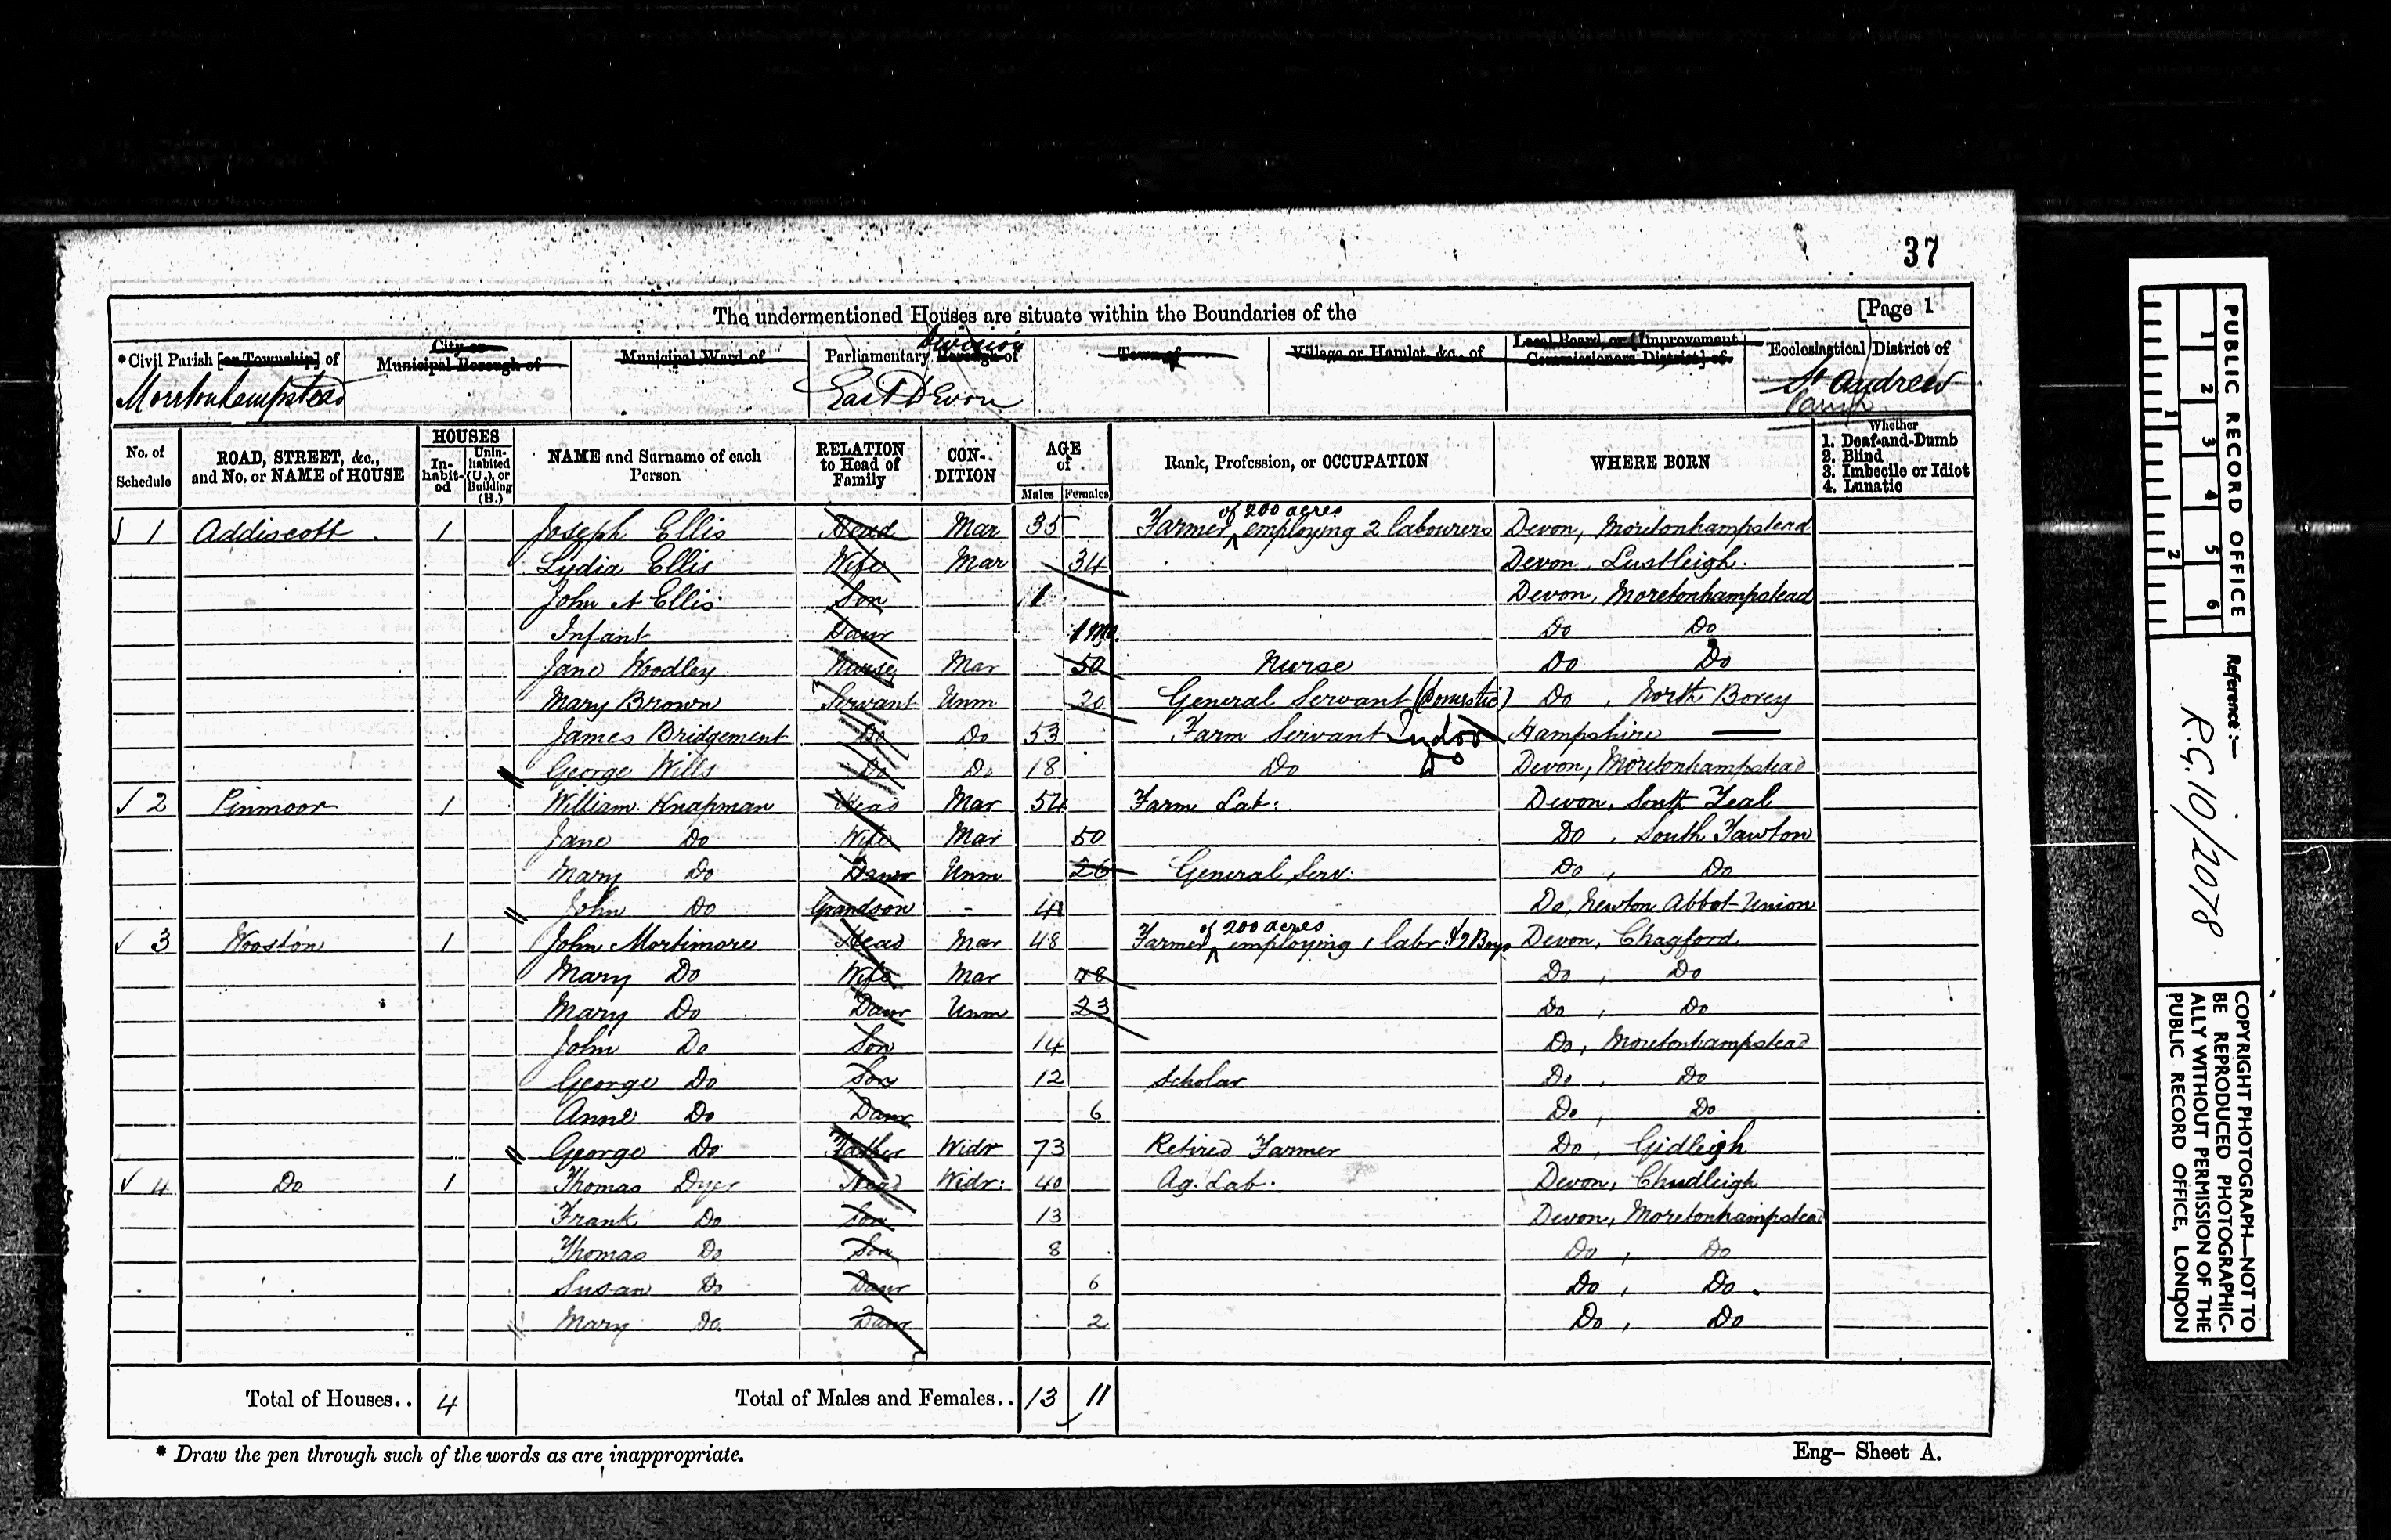 37
The undermentioned Houses are situate within the Boundaries of the [Page 1
*Civil Parish [or Township] of City or Municipal Borough of Municipal Ward of Parliamentary Borough of Division Town of Village or Hamlet, &c., of Local Board, or [Improvement Commissioners District] of Ecclesiastical District of
Moretonhampstead East Devon St Andrew Parish
No. of Schedule ROAD, STREET, &c., and No. or NAME of HOUSE HOUSES Inhabited Uninhabited (U.), or Building (B.) NAME and Surname of each Person RELATION to Head of Family CONDITION AGE of Males Females Rank, Profession, or OCCUPATION WHERE BORN Whether 1. Deaf-and-Dumb 2. Blind 3. Imbecile or Idiot 4. Lunatic
1 Addiscott 1 Joseph Ellis Head Mar 35 Farmer of 200 acres employing 2 labourers Devon, Moretonhampstead
Lydia Ellis Wife Mar 34 Devon, Lustleigh.
John Ellis Son 1 Devon, Moretonhampstead
Infant Daur 1 Mo Do Do
Jane Woodley Nurse Mar 50 Nurse Do Do
Mary Brown Servant Unm 20 General Servant (Domestic) Do, North Bovey
James Bridgement Do Do 53 Farm Servant Indoor Hampshire —
George Wills Do Do 18 Do Do Devon, Moretonhampstead
2 Pinmoor 1 William Knapman Head Mar 54 Farm Lab: Devon, South Zeal
Jane Do Wife Mar 50 Do, South Tawton
Mary Do Daur Unm 26 General Serv. Do, Do
John Do Grandson - 4 Do, Newton Abbot Union
3 Wooston 1 John Mortimore Head Mar 48 Farmer of 200 acres employing 1 labr. & 2 Boys Devon, Chagford
Mary Do Wife Mar 48 Do, Do
Mary Do Daur Unm 23 Do, Do
John Do Son 14 Do, Moretonhampstead
George Do Son 12 Scholar Do, Do
Anne Do Daur 6 Do, Do
George Do Father Widr 73 Retired Farmer Do, Gidleigh
4 Do 1 Thomas Dyer Head Widr: 40 Ag. Lab. Devon, Chudleigh
Frank Do Son 13 Devon, Moretonhampstead
Thomas Do Son 8 Do, Do
Susan Do Daur 6 Do, Do.
Mary Do Daur 2 Do, Do
Total of Houses.. 4 Total of Males and Females.. 13 11
* Draw the pen through such of the words as are inappropriate. Eng- Sheet A.
PUBLIC RECORD OFFICE
1 2 3 4 5 6
1 2
Reference:-
R.G. 10/2078
COPYRIGHT PHOTOGRAPH—NOT TO
BE REPRODUCED PHOTOGRAPHIC-
ALLY WITHOUT PERMISSION OF THE
PUBLIC RECORD OFFICE, LONDON